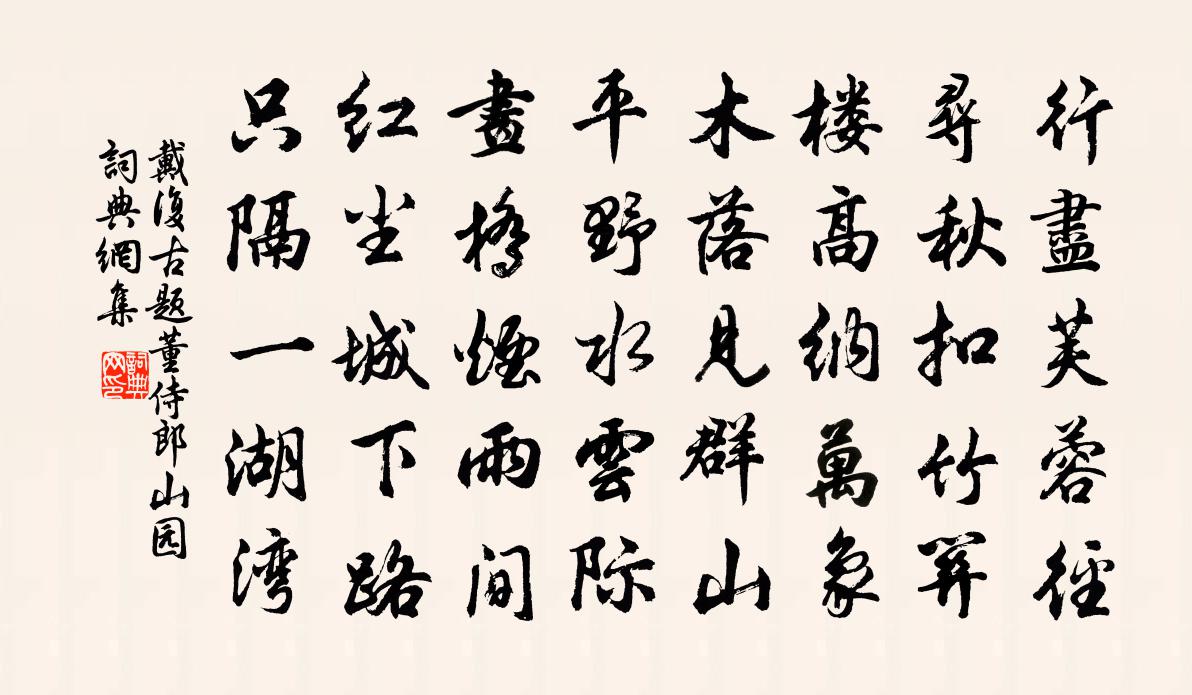 行盡芙蓉徑
尋秋扣竹關
楼高納萬象
木落見群山
平野水雲际
畫橋煙雨间
红尘城下路
只隔一湖湾
戴復古题董侍郎山园
詞典網集
詞典网印